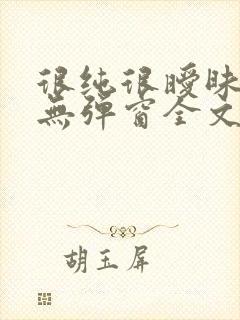 很纯很曖昧
無弹窗全文
胡玉屏